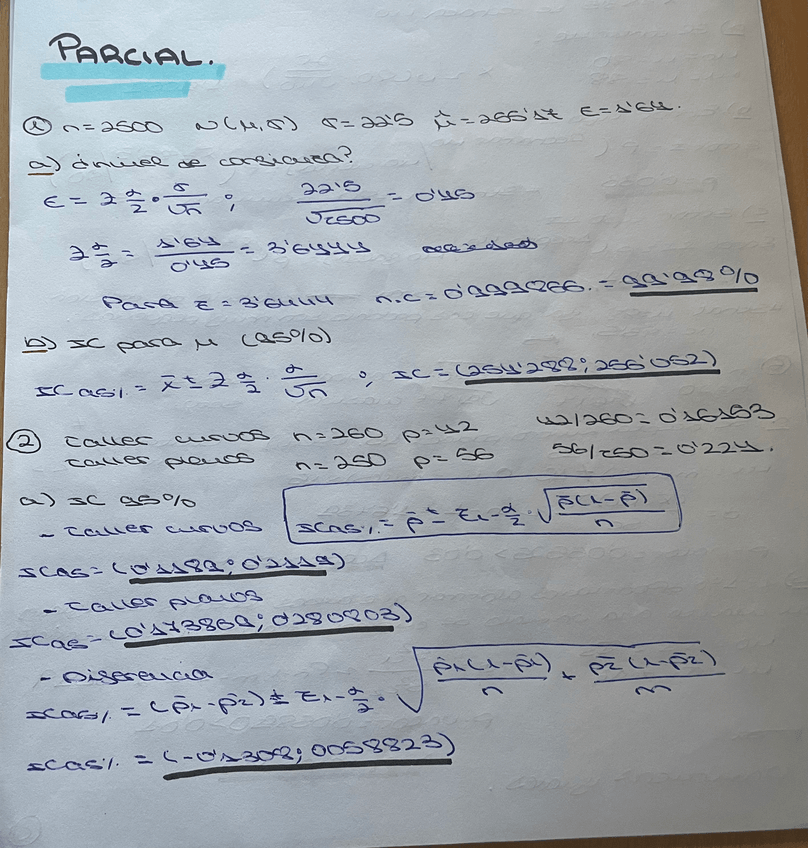 PARCIAL.
① n=2500 N(μ,σ) σ=22'5 μ̂=255'17 ε=1'64.
a) ¿nivel de confianza?
ε = Z α/2 · σ/√n ; 22'5/√2500 = 0'45
Z α/2 = 1'64/0'45 = 3'6444
Para Z = 3'6444 n.c = 0'999866. = 99'98%
b) IC para μ (95%)
IC 95% = x̄ ± Z α/2 · σ/√n ; IC = (254'288; 256'052)
② Taller curvos n=260 p=42 42/260=0'16153
Taller planos n=250 p=56 56/250=0'224.
a) IC 95%
- Taller curvos IC95% = p̄ ± Z1-α/2 · √p̄(1-p̄)/n
IC95=(0'1189; 0'2119)
- Taller planos
IC95=(0'173869; 0280803)
- Diferencia
IC95% = (p̄1-p̄2) ± Z1-α/2 · √p̄1(1-p̄1)/n + p̄2(1-p̄2)/m
IC95% = (-0'1308; 0058823)